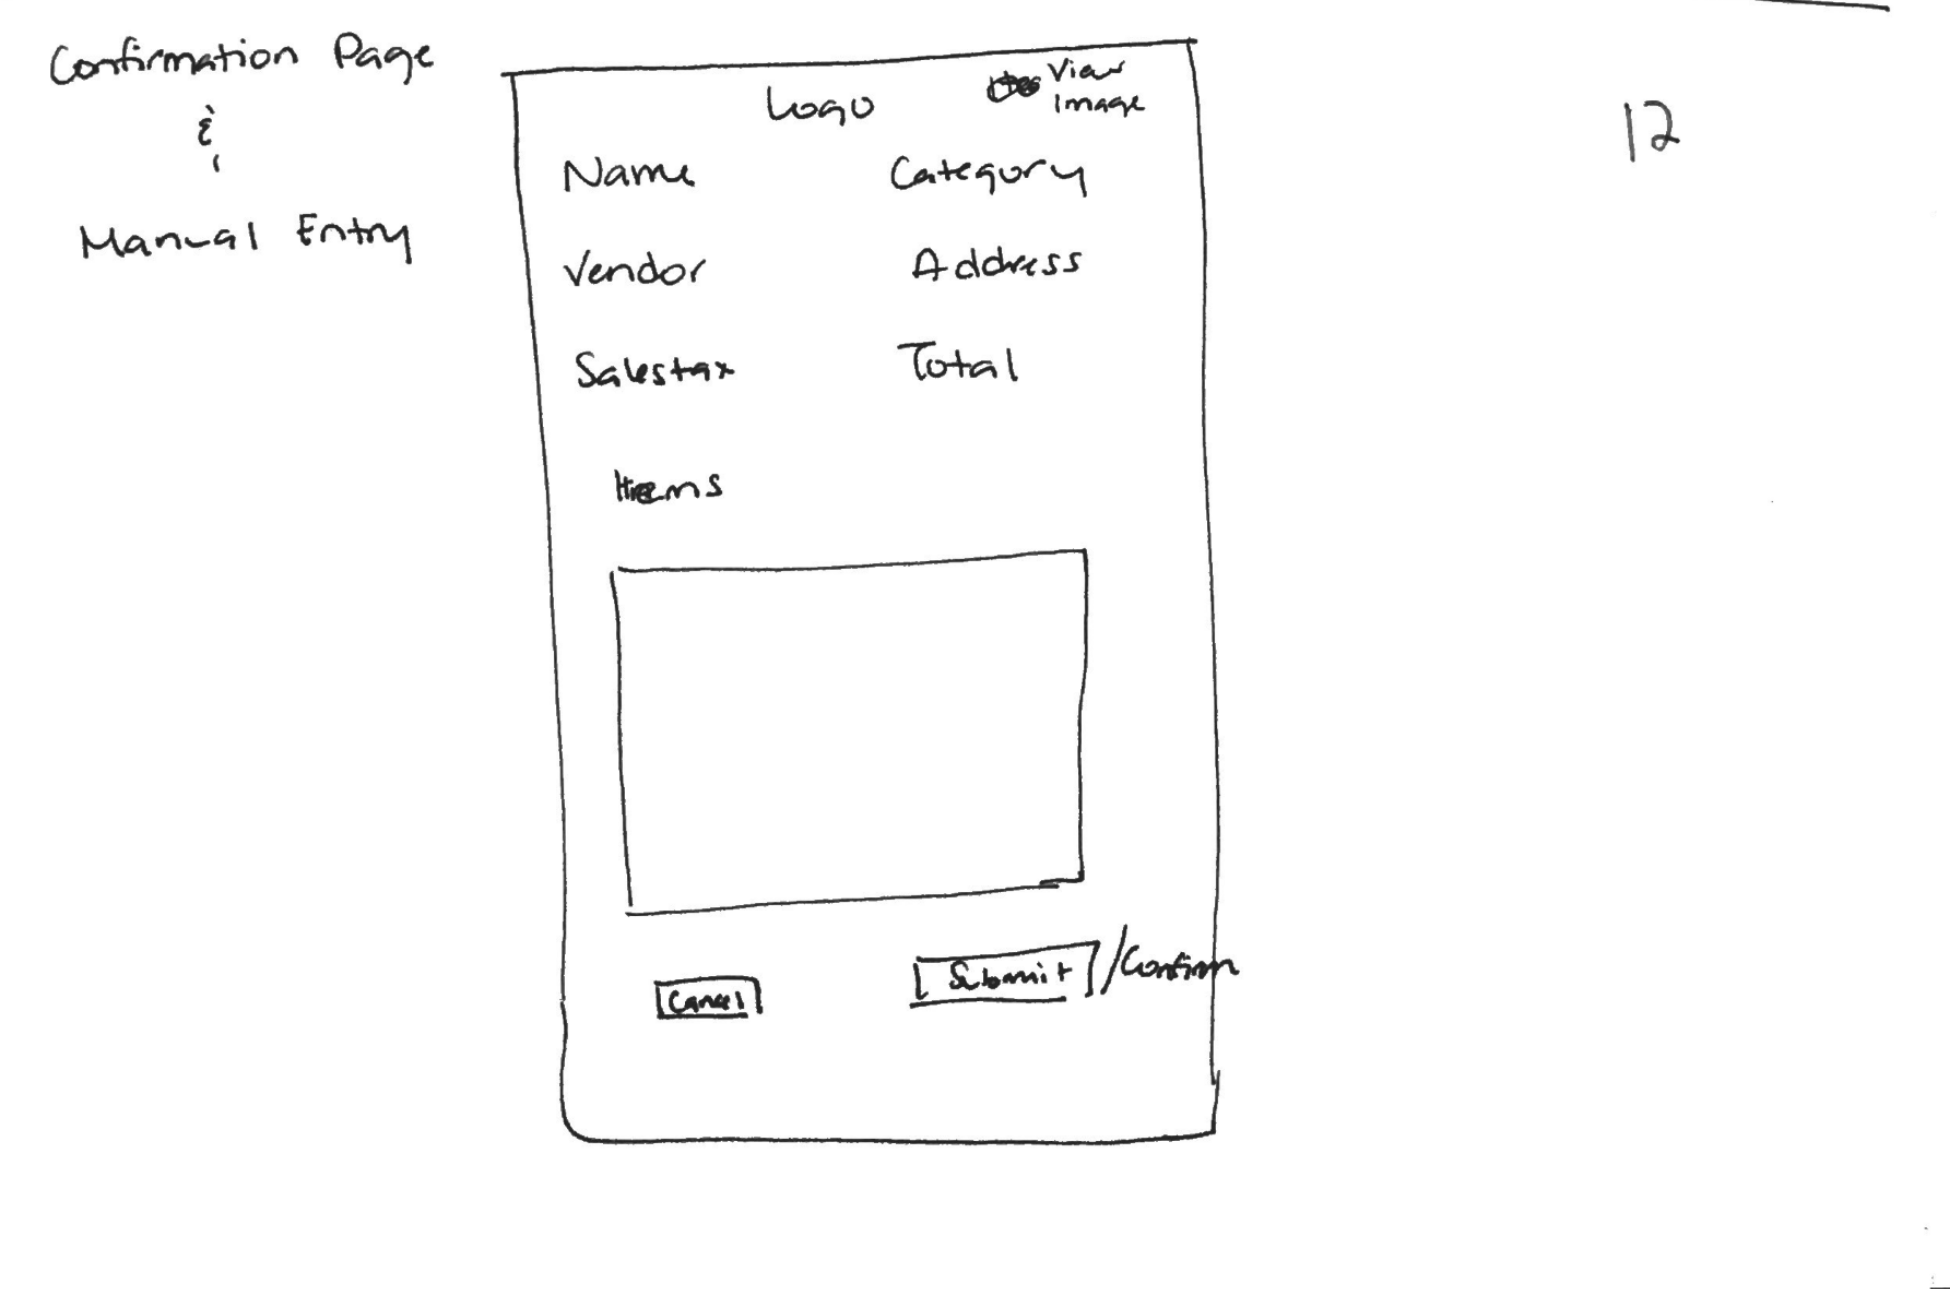 Confirmation Page
&
Manual Entry
12
Logo
View
Image
Name Category
Vendor Address
Salestax Total
Items
Cancel Submit /Confirm